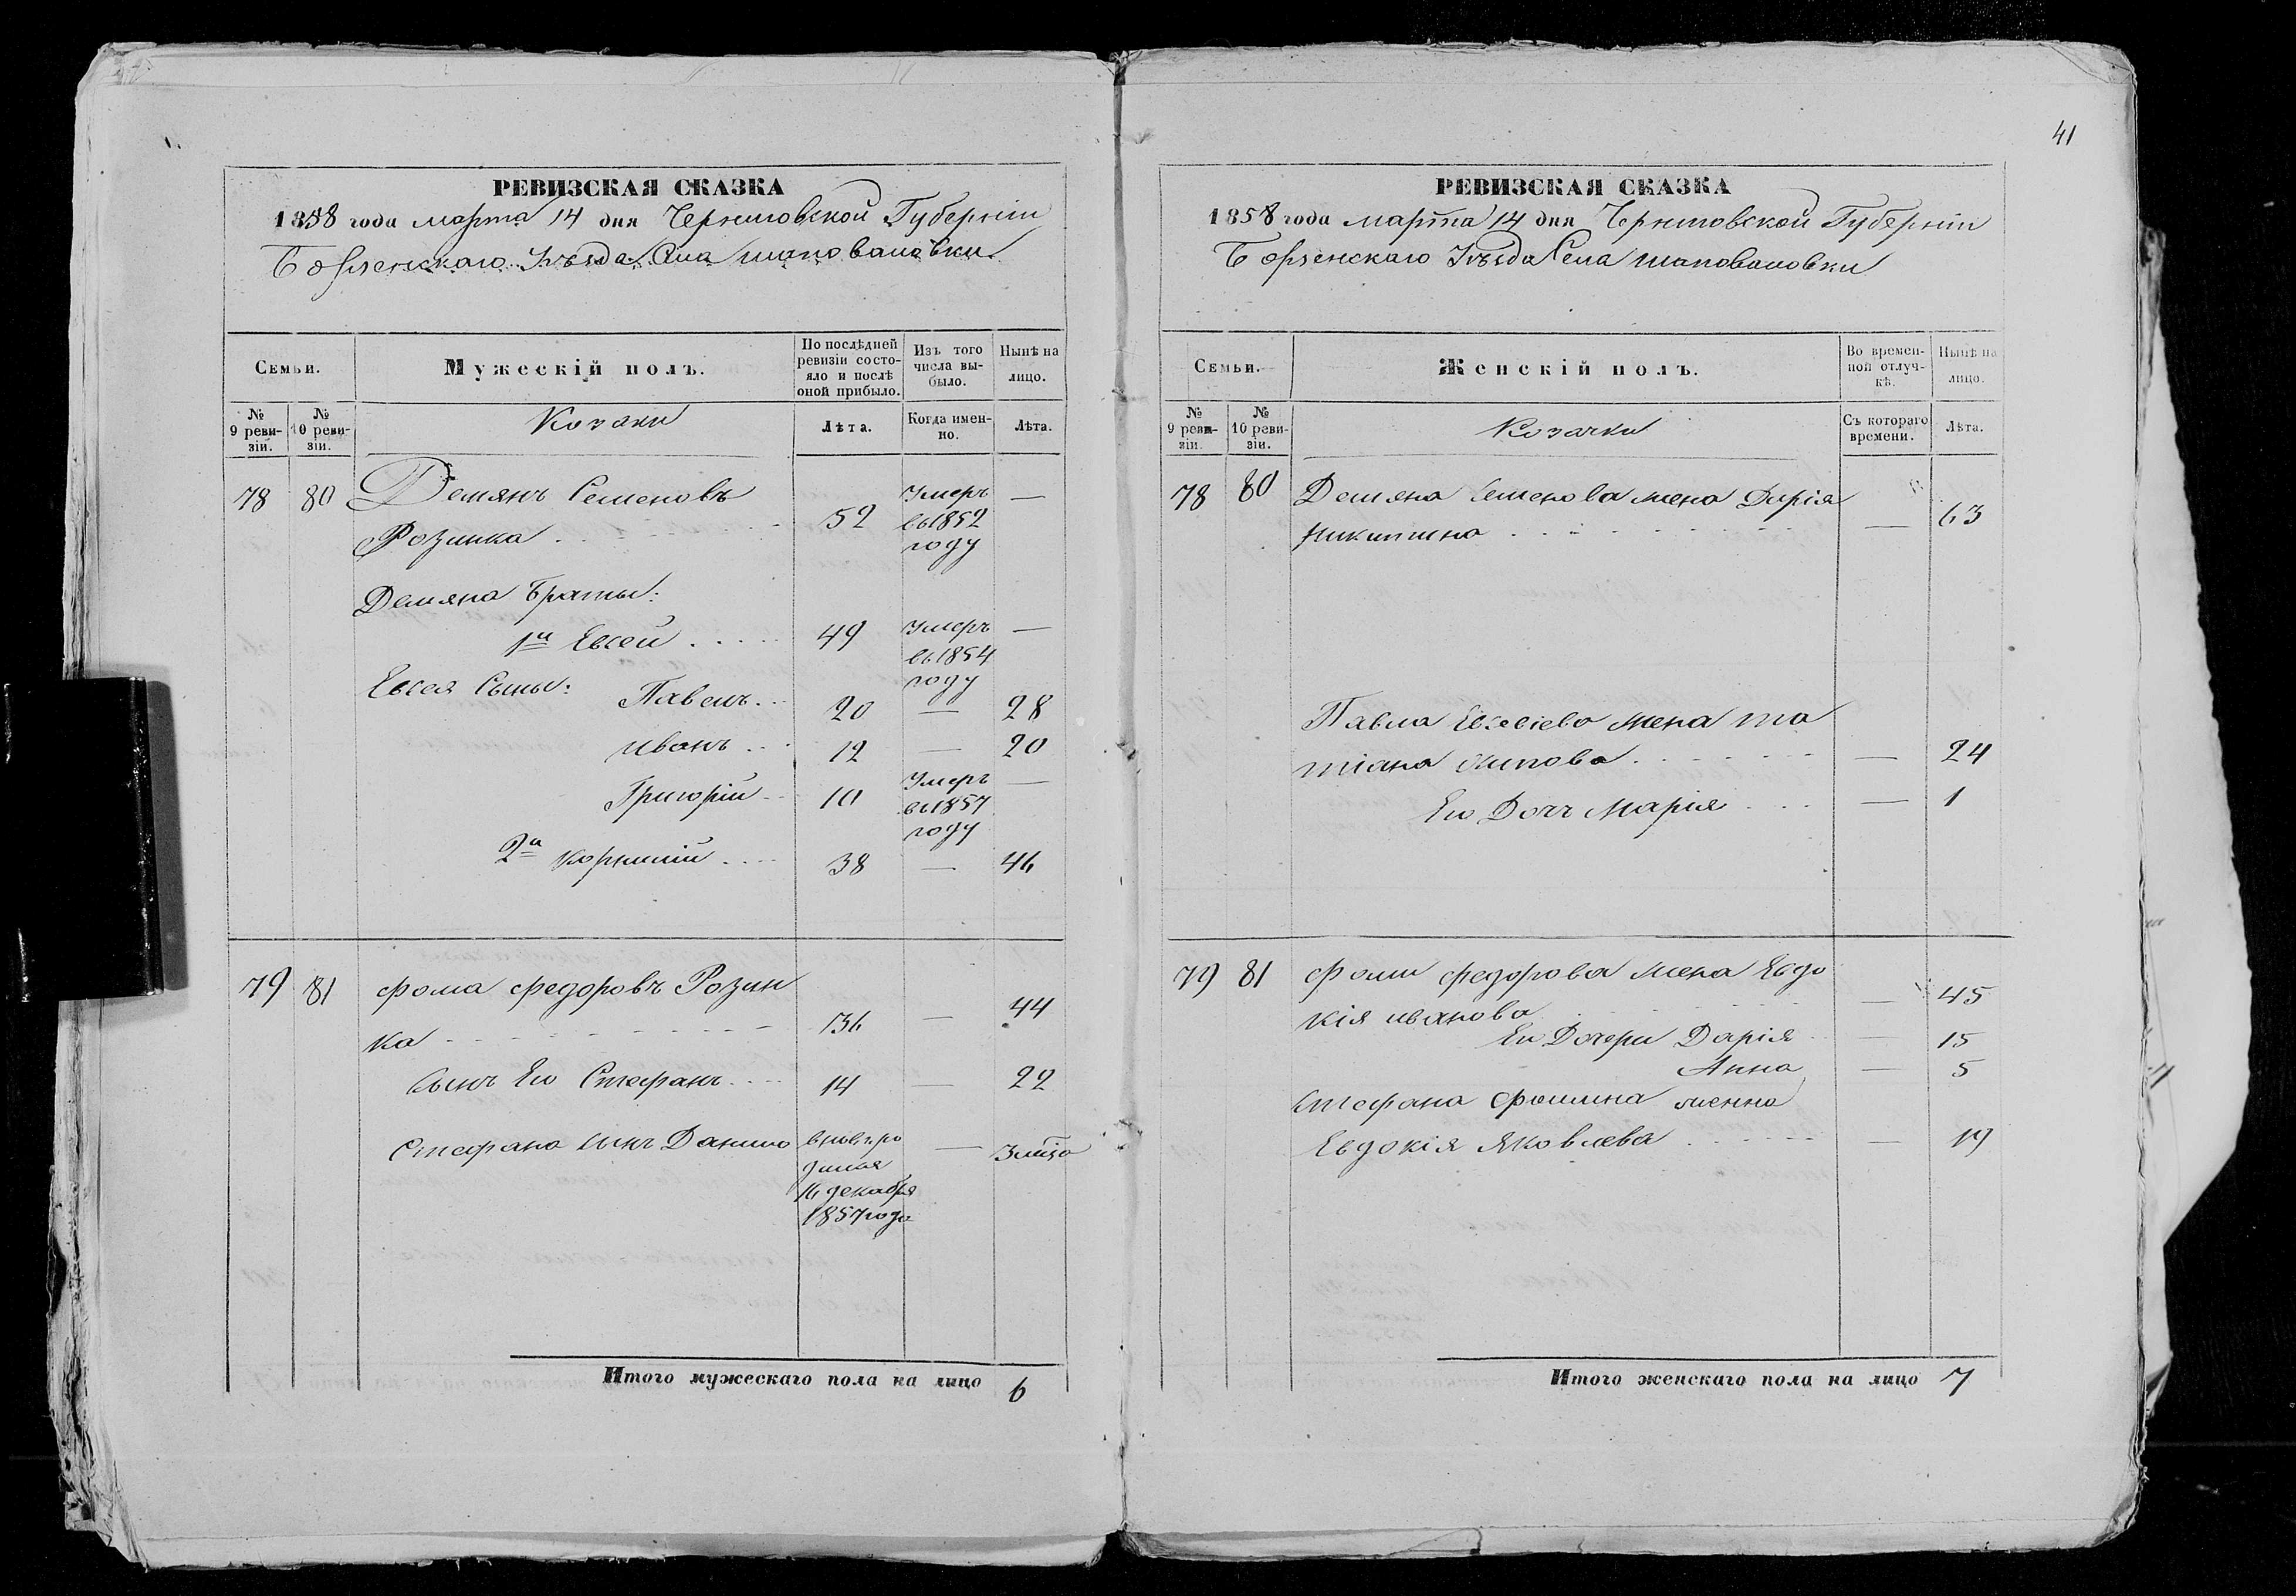 41
РЕВИЗСКАЯ СКАЗКА
1858 года марта 14 дня Черниговской Губерніи
Борзенскаго Уѣзда Села шаповаловки
Семьи.
Мужескій полъ.
По послѣдней ревизіи состояло и послѣ оной прибыло.
Изъ того числа выбыло.
Нынѣ на лицо.
№ 9 ревизіи.
№ 10 ревизіи.
Козаки
Лѣта.
Когда именно.
Лѣта.
78 80 Демянъ Семеновъ
Розинка 52 Умеръ въ 1852 году —
Демяна Браты:
1й Евсей 49 Умеръ въ 1854 году —
Евсея Сыны: Павелъ 20 — 28
иванъ 12 — 20
Григорій 10 Умеръ въ 1857 году —
2й корнилій 38 — 46
79 81 фома федоровъ Розин
ка 36 — 44
сынъ Его Стефанъ 14 — 22
Стефана сынъ Данило вновь ро
16 декабря
1857 года
—
Итого мужескаго пола на лицо 6
РЕВИЗСКАЯ СКАЗКА
1858 года марта 14 дня Черниговской Губерніи
Борзенскаго Уѣзда Села шаповаловки
Семьи.
Женскій полъ.
Во временной отлучкѣ.
Нынѣ на лицо.
№ 9 ревизіи.
№ 10 ревизіи.
Козачки
Съ котораго времени.
Лѣта.
78 80 Демяна Семенова жена Дарія
никитина — 63
Павла Евсеіева жена та
тіана осипова — 24
Его Доч Марія — 1
79 81 фомы федорова жена Евдо
кія иванова — 45
Ей Дочери Дарія — 15
Анна — 5
Стефана фомина женна
Евдокія Яковлева — 19
Итого женскаго пола на лицо 7